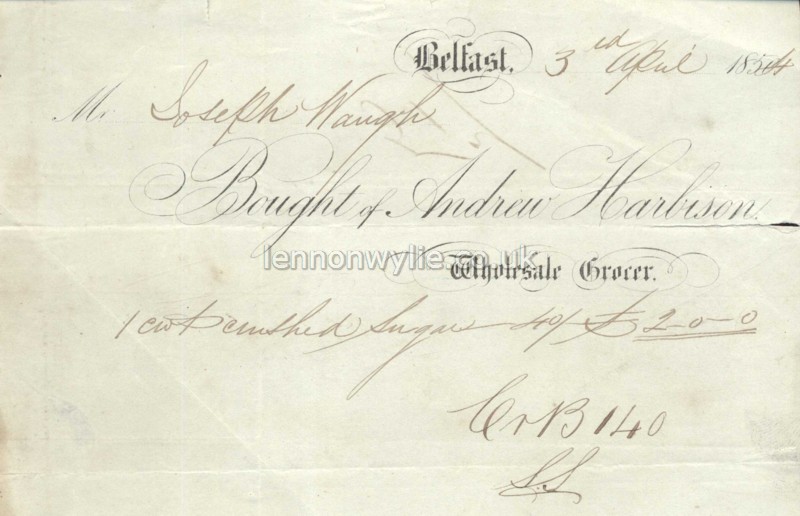 Belfast, 3rd April 1854
Mr Joseph Waugh
Bought of Andrew Harbison.
lennonwylie.co.uk
Wholesale Grocer.
1 cwt crushed Sugar 40/ £2-0-0
Cr B 140
S.S